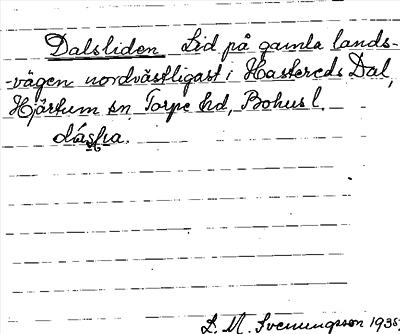 Dalsliden Lid på gamla lands-
-vägen nordvästligast i Hastereds Dal,
Hjärtum sn Torpe hd, Bohus l.
S. M. Svenungsson 1935